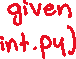 given
int.py)